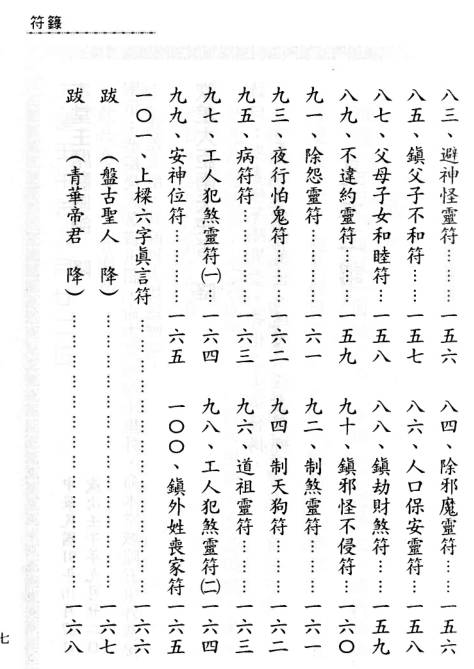 符籙
八三、避神怪靈符……一五六 八四、除邪魔靈符……一五六
八五、鎮父子不和符……一五七 八六、人口保安靈符……一五八
八七、父母子女和睦符……一五八 八八、鎮劫財煞符……一五九
八九、不違約靈符……一五九 九十、鎮邪怪不侵符……一六〇
九一、除怨靈符……一六一 九二、制煞靈符……一六一
九三、夜行怕鬼符……一六二 九四、制天狗符……一六二
九五、病符符……一六三 九六、道祖靈符……一六三
九七、工人犯煞靈符㈠……一六四 九八、工人犯煞靈符㈡……一六四
九九、安神位符……一六五 一〇〇、鎮外姓喪家符……一六五
一〇一、上樑六字眞言符……一六六
跋 （盤古聖人 降）……一六七
跋 （青華帝君 降）……一六八
七